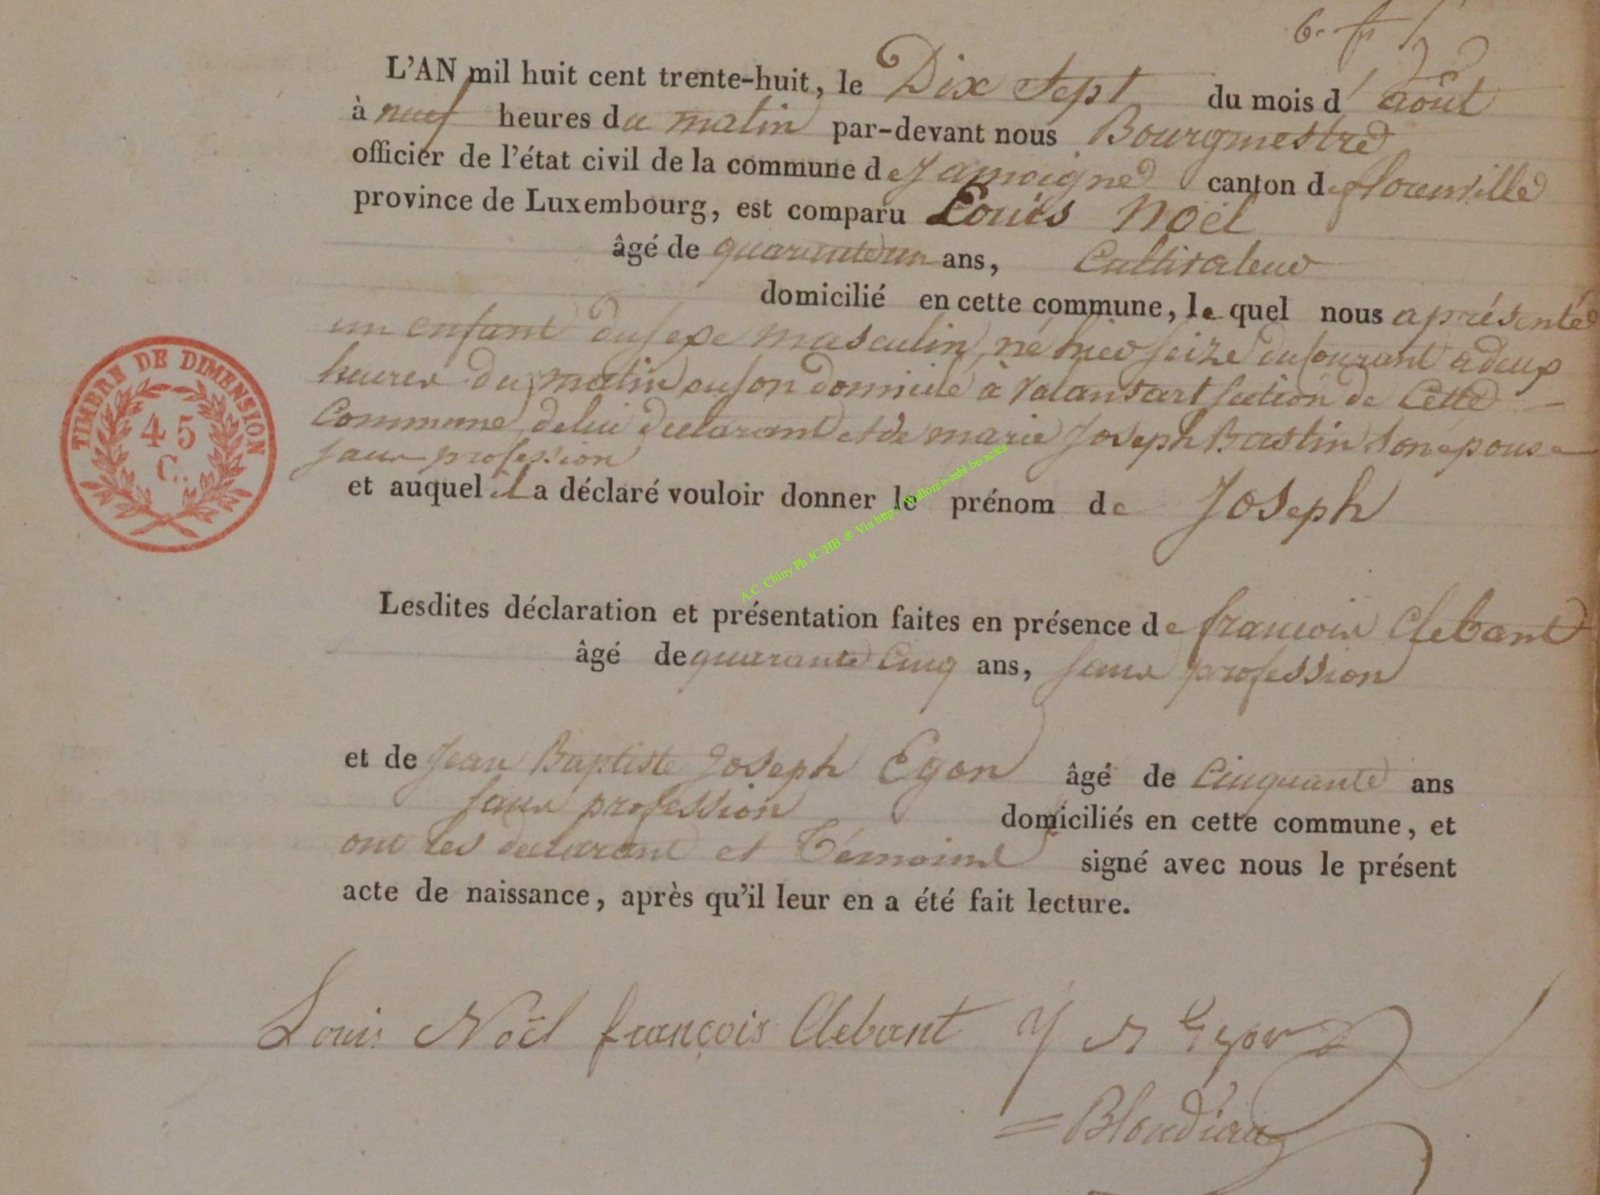 L'AN mil huit cent trente-huit, le Dix Sept du mois d' août
à neuf heures du matin par-devant nous Bourgmestre
officier de l'état civil de la commune de Jamoigne canton de florenville
province de Luxembourg, est comparu Louis Noël
âgé de quaranteun ans, Cultivateur
domicilié en cette commune, le quel nous a présenté
un enfant du sexe masculin, né hier seize du courant a deux
heures du matin en son domicile à Valansart section de Cette
Commune, de lui declarant et de marie Joseph Bastin son épouse
sans profession
et auquel il a déclaré vouloir donner le prénom de Joseph
TIMBRE DE DIMENSION
45
C.
A.C. Chiny Ph JC/HB ® Via
Lesdites déclaration et présentation faites en présence de francois Clebant
âgé de quarante Cinq ans, sans profession
et de Jean Baptiste Joseph Egon âgé de Cinquante ans
sans profession domiciliés en cette commune, et
ont les declarant et Témoins signé avec nous le présent
acte de naissance, après qu'il leur en a été fait lecture.
Louis Noël françois Clebant
Blondiau